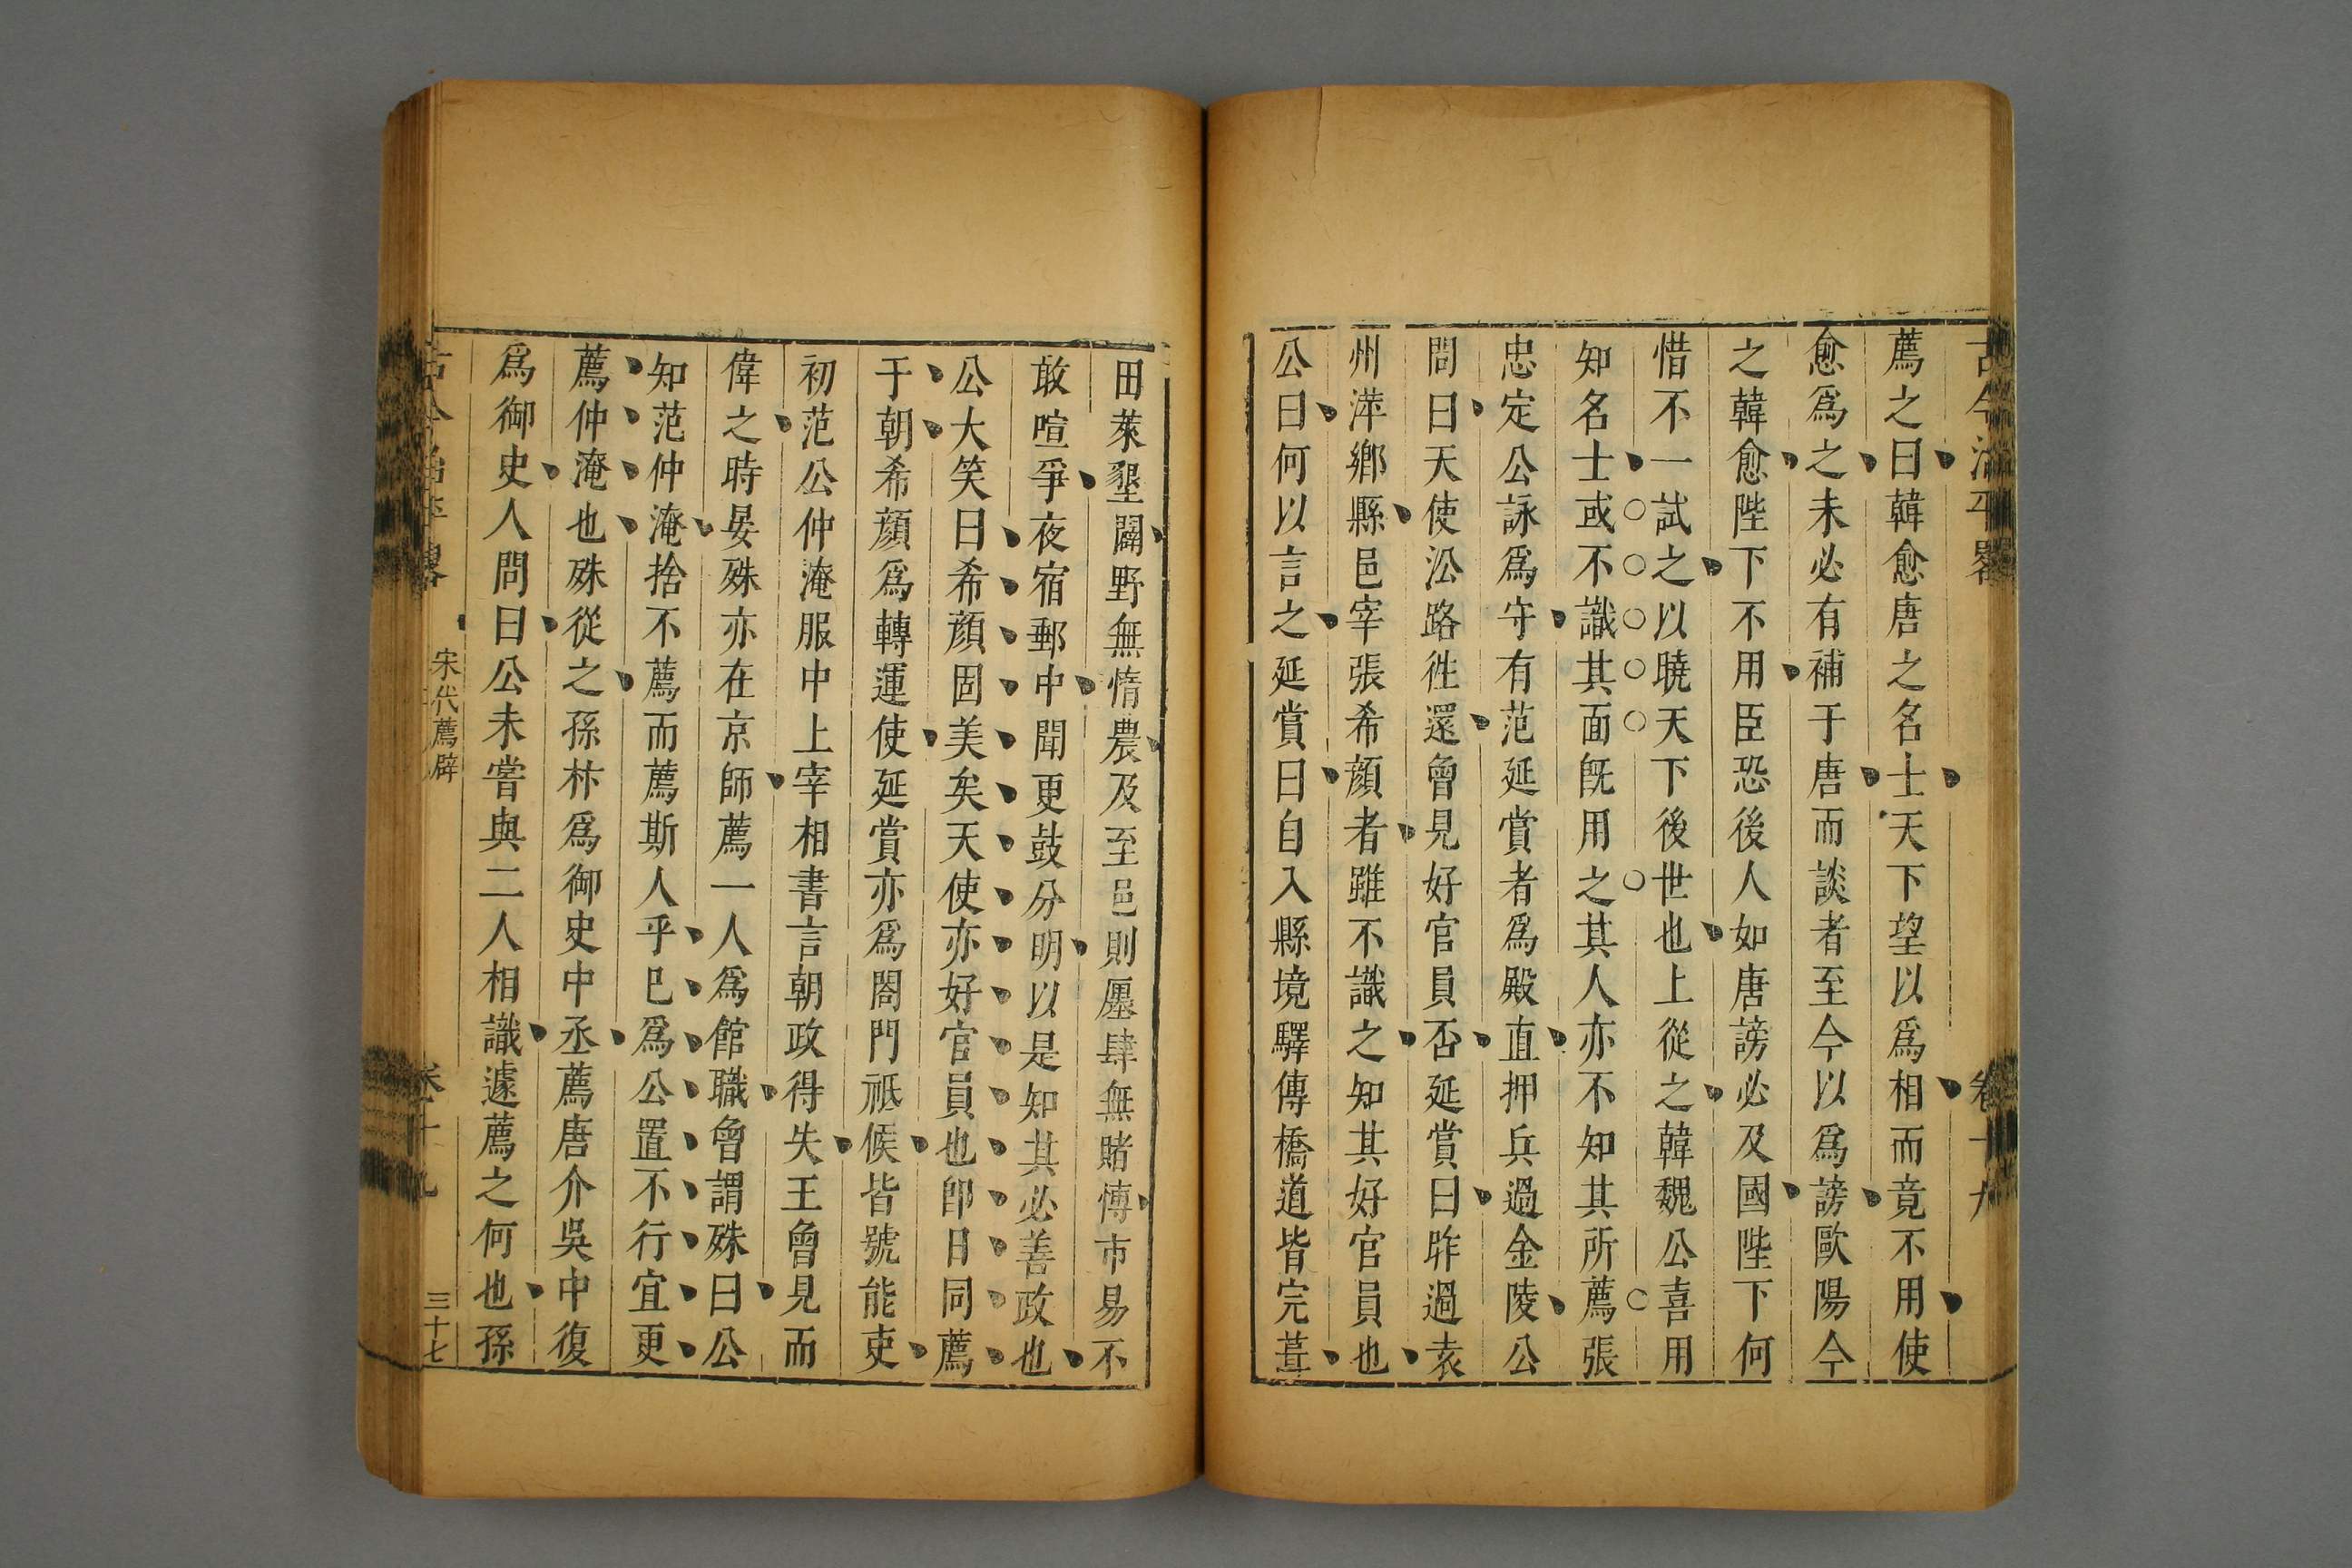 古今治平畧
卷十九
薦之曰韓愈唐之名士天下望以爲相而竟不用使
愈爲之未必有補于唐而談者至今以爲謗歐陽今
之韓愈陛下不用臣恐後人如唐謗必及國陛下何
惜不一試之以曉天下後世也上從之韓魏公喜用
知名士或不識其面旣用之其人亦不知其所薦張
忠定公詠爲守有范延賞者爲殿直押兵過金陵公
問曰天使㳂路徃還曾見好官員否延賞曰昨過袁
州萍鄉縣邑宰張希顔者雖不識之知其好官員也
公曰何以言之延賞曰自入縣境驛傳橋道皆完葺
田萊墾闢野無惰農及至邑則廛肆無賭博市易不
敢喧爭夜宿郵中聞更鼓分明以是知其必善政也
公大笑曰希顔固美矣天使亦好官員也卽日同薦
于朝希顔爲轉運使延賞亦爲閤門祇候皆號能吏
初范公仲淹服中上宰相書言朝政得失王曾見而
偉之時晏殊亦在京師薦一人爲館職曾謂殊曰公
知范仲淹捨不薦而薦斯人乎已爲公置不行宜更
薦仲淹也殊從之孫抃爲御史中丞薦唐介吳中復
爲御史人問曰公未嘗與二人相識遽薦之何也孫
古今治平畧
宋代薦辟
卷十九
三十七